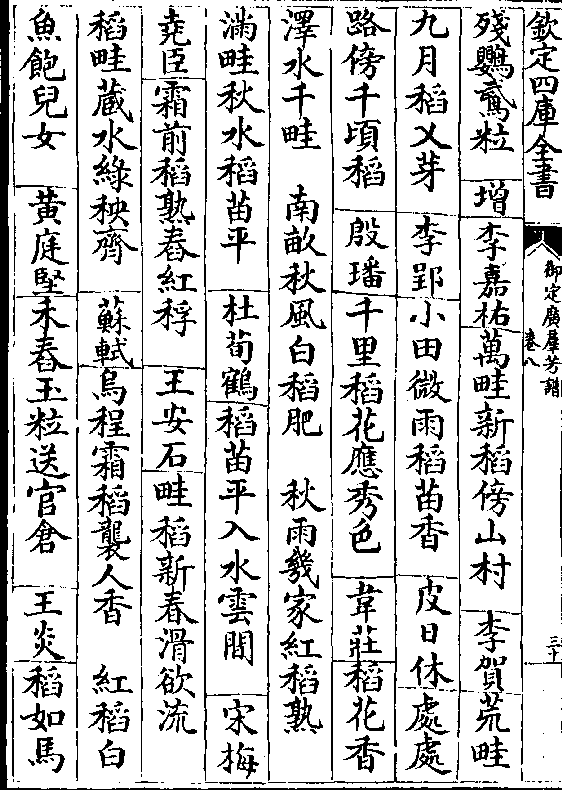 欽定四庫全書
御定廣羣芳譜
卷八
三十
殘鸚鵡粒 增 李嘉祐萬畦新稻傍山村 李賀荒畦
九月稻乂芽 李郢小田微雨稻苗香 皮日休處處
路傍千頃稻 殷璠千里稻花應秀色 韋莊稻花香
澤水千畦 南畝秋風白稻肥 秋雨幾家紅稻熟
滿畦秋水稻苗平 杜荀鶴稻苗平入水雲間 宋梅
堯臣霜前稻熟舂紅稃 王安石畦稻新舂滑欲流
稻畦蔵水綠秧齊 蘇軾烏程霜稻襲人香 紅稻白
魚飽兒女 黃庭堅禾舂玉粒送官倉 王炎稻如馬